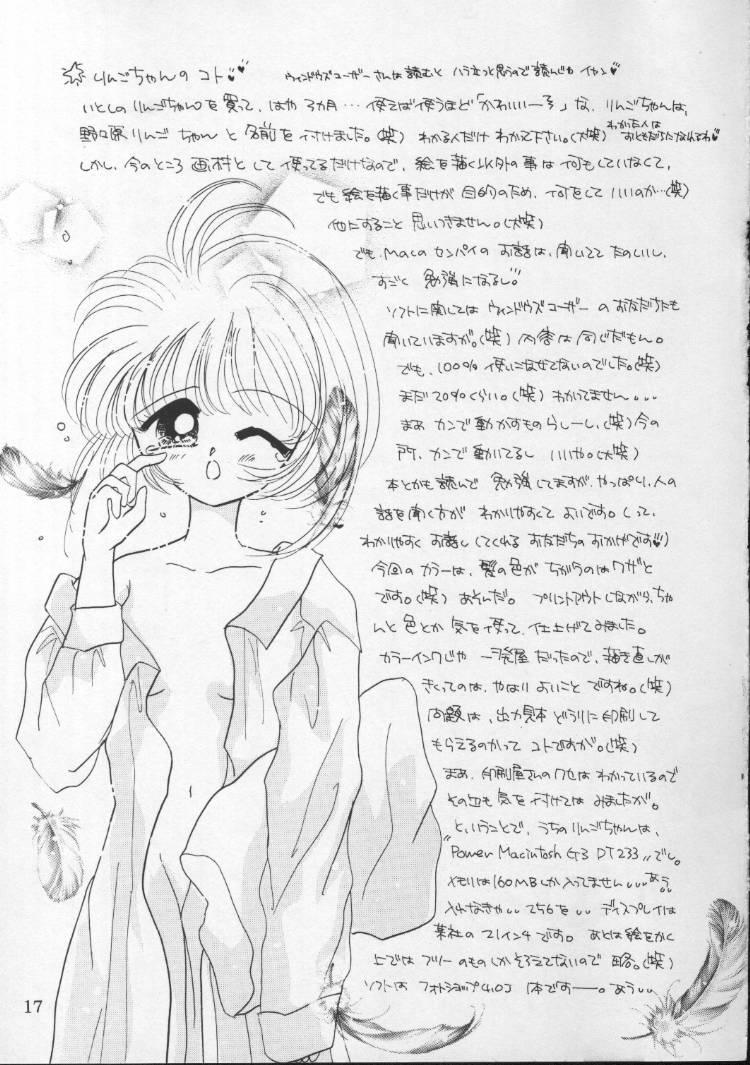 りんごちゃんの コト ウィンドウズユーザーさんは読むと ハラ立つと思うので 読んじゃ イヤン
いとしの りんごちゃんを 買って、はや 3ヵ月… 使えば使うほど「かわいいーっ」な、りんごちゃんは、
野々原りんご ちゃん と 名前 を 付けました。(笑) わかる人だけ わかって下さい。(大笑) わかった人は おともだちになれてね
しかし、今のところ 画材として 使ってるだけなので、絵を描く以外の事は 何もしていなくて、
でも 絵を描く事だけが 目的のため、何をして いいのか…(笑)
他にすること 思いつきません。(大笑)
でも、Macの センパイの お話は、聞いてて たのしいし、
すごく 勉強になるし。
ソフトに関しては ウィンドウズ ユーザー の お友だちたちも
聞いていますが。(笑) 内容は 同じだもん。
でも、100% 使いこなせてないのでした。(笑)
まだ 20%くらい。(笑) わかってません。。。
まあ カンで 動かすもの らしーし、(笑) 今の
所、カンで 動いてるし いいや。(大笑)
本とかも 読んで 勉強してますが、やっぱり、人の
話を 聞く方が わかりやすくて よいです。(って、
わかりやすく お話ししてくれる お友だちの おかげです)
今回の カラーは、髪の色が ちがうのは ワザと
です。(笑) あそんだ。 プリントアウト しながら、ちゃ
んと 色とか 気を使って、仕上げてみました。
カラーインクじゃ 一発屋だったので、描き直しが
きくってのは、やはり よいこと ですね。(笑)
問題は、出力見本 どうりに 印刷して
もらえるのかって コトですが。(笑)
まあ、印刷屋さんのクセは わかっているので
その辺も 気を付けては みましたが。
と、いうことで、うちの りんごちゃんは、
"Power Macintosh G3 DT233" でし。
メモリは 160MBしか 入ってません… あう
入れなきゃ‥ 256を‥ ディスプレイは
某社の 21インチです。 あとは 絵をかく
上では フツーのものしか そろえてないので 略。(笑)
ソフトは フォトショップ4.0J 1本ですーー。あう‥
17